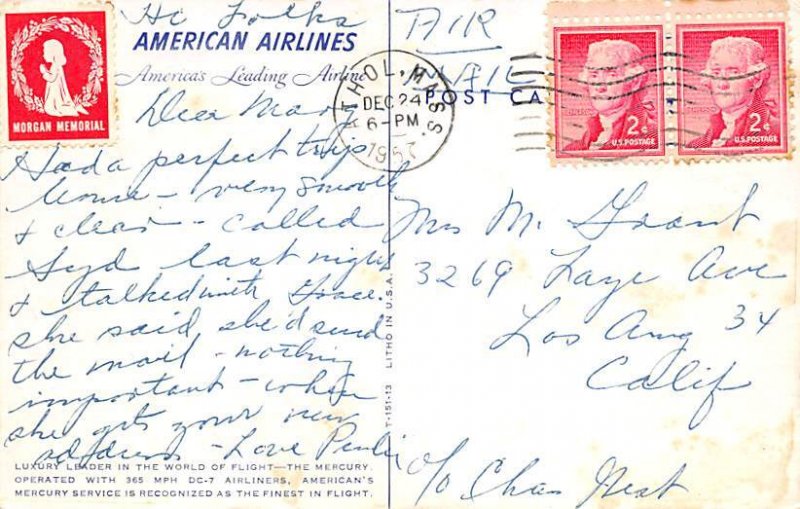 Hi Folks
AMERICAN AIRLINES
America's Leading Airline
MORGAN MEMORIAL
Dear Mary
Had a perfect trip
home - very smooth
& clear - called
Syd last night
& talked with Grace.
she said she'd send
the mail - nothing
important - when
she gets your new
address - Love
LUXURY LEADER IN THE WORLD OF FLIGHT—THE MERCURY.
OPERATED WITH 365 MPH DC-7 AIRLINERS, AMERICAN'S
MERCURY SERVICE IS RECOGNIZED AS THE FINEST IN FLIGHT.
T-151-13 LITHO IN U.S.A.
AIR
MAIL
POST CA
ATHOL, MASS.
DEC 24
6-PM
1957
2¢
U.S. POSTAGE
2¢
U.S. POSTAGE
Mrs M. Grant
3269 Faye Ave
Los Ang 34
Calif
c/o Chas West